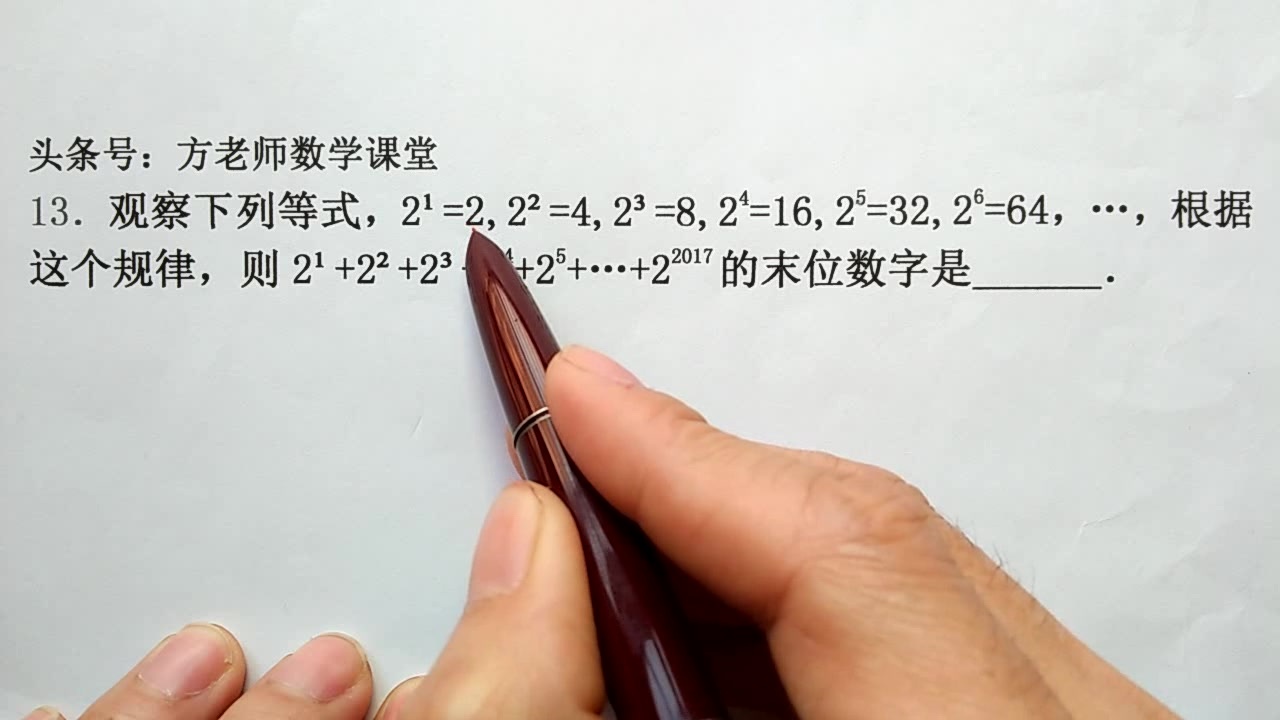 头条号：方老师数学课堂
13．观察下列等式，2¹=2, 2²=4, 2³=8, 2⁴=16, 2⁵=32, 2⁶=64，…，根据
这个规律，则 2¹+2²+2³+ ⁴+2⁵+…+2²⁰¹⁷的末位数字是______．